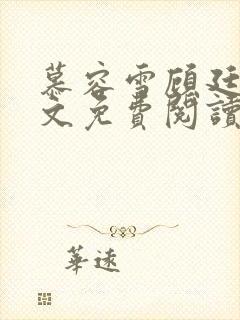 慕容雪顧廷
文免費閱讀
華遠